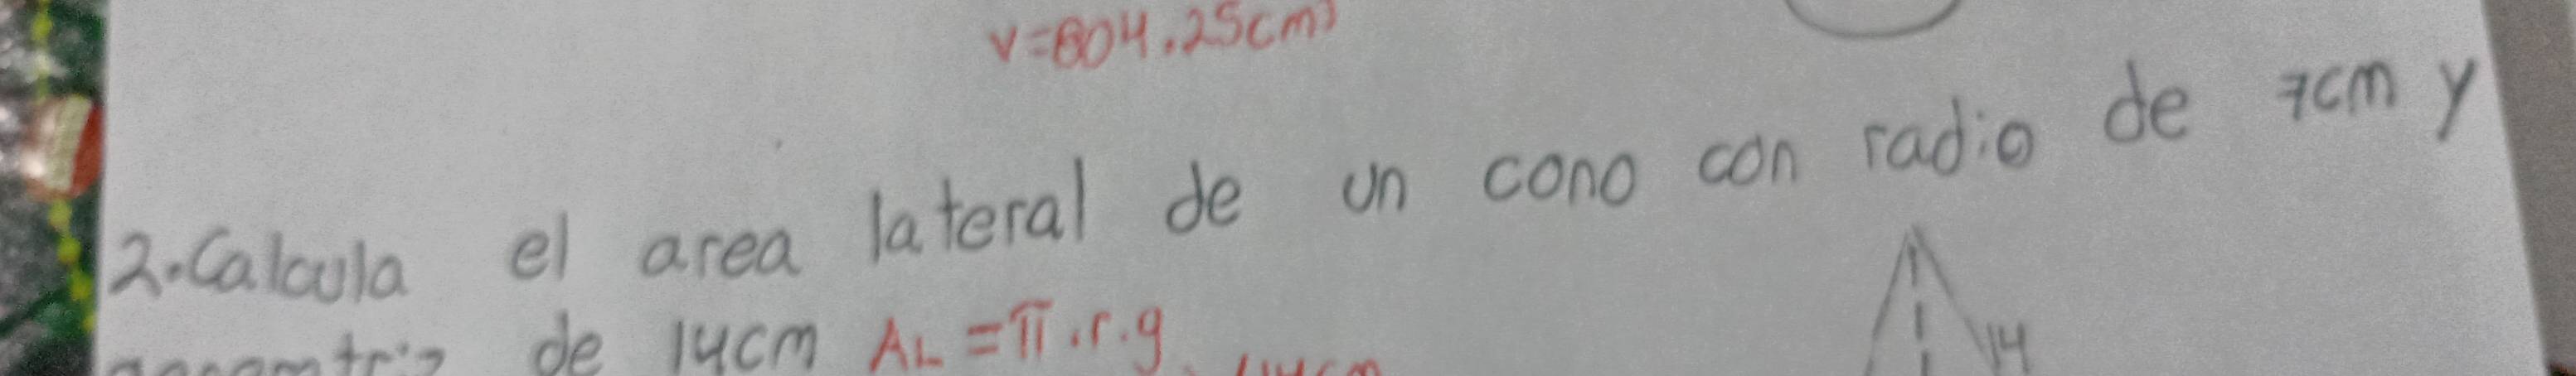 V=804.25cm³
2.Calcula el area lateral de un cono con radio de 7cm y
de 14cm AL=π.r.g
14